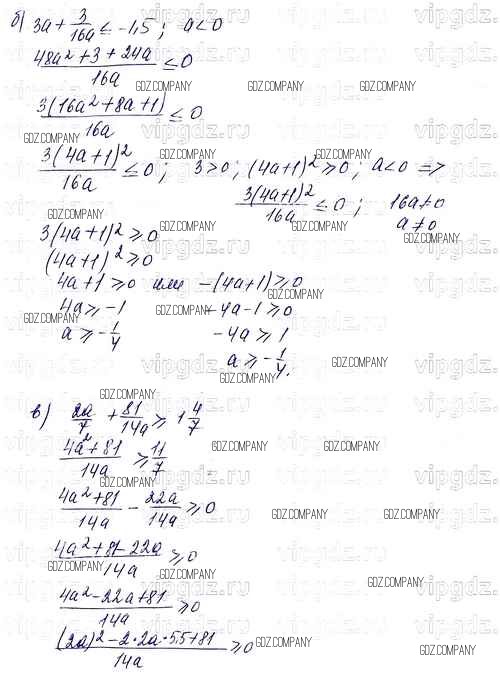 б) 3a + 3/16a ≤ -1,5 ; a<0
(48a² + 3 + 24a)/16a ≤ 0
3(16a² + 8a + 1)/16a ≤ 0
3(4a+1)²/16a ≤ 0 ; 3>0 ; (4a+1)² ≥ 0 ; a<0 =>
3(4a+1)²/16a ≤ 0 ; 16a≠0
a≠0
3(4a+1)² ≥ 0
(4a+1)² ≥ 0
4a+1 ≥ 0 или -(4a+1) ≥ 0
4a ≥ -1 -4a-1 ≥ 0
a ≥ -1/4 -4a ≥ 1
a ≥ -1/4.
в) 2a/7 + 81/14a ≥ 1 4/7
(4a² + 81)/14a ≥ 11/7
(4a² + 81)/14a - 22a/14a ≥ 0
(4a² + 81 - 22a)/14a ≥ 0
(4a² - 22a + 81)/14a ≥ 0
((2a)² - 2·2a·5,5 + 81)/14a ≥ 0
vipgdz.ru
GDZ.COMPANY